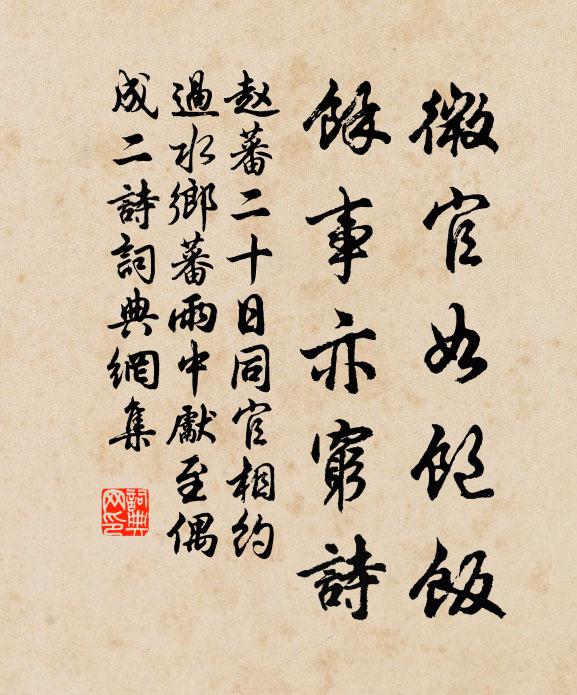 微官如飽飯
餘事亦窮詩
趙蕃二十日同官相約
過水鄉蕃雨中獻至偶
成二詩詞典網集
詞典網印